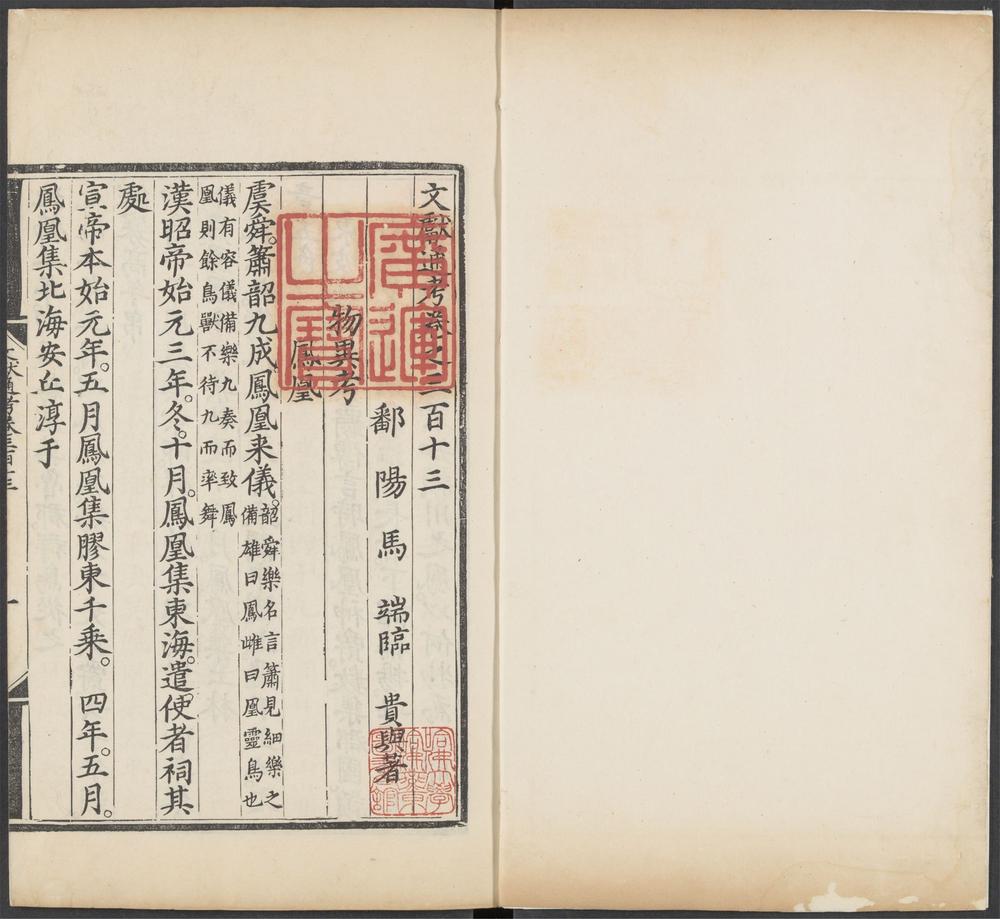 文獻通考卷之三百十三
鄱陽馬端臨貴與著
物異考
鳳凰
虞舜。簫韶九成。鳳凰来儀。韶舜樂名言簫見細樂之
備雄曰鳳雌曰凰靈鳥也
儀有容儀備樂九奏而致鳳
凰則餘鳥獸不待九而率舞
漢昭帝始元三年。冬。十月。鳳凰集東海。遣使者祠其
處
宣帝本始元年。五月鳳凰集膠東千乗。四年。五月。
鳳凰集北海安丘淳于
文獻通考卷三百十三
一
廣運之寶
哈佛大學哈佛燕京圖書館